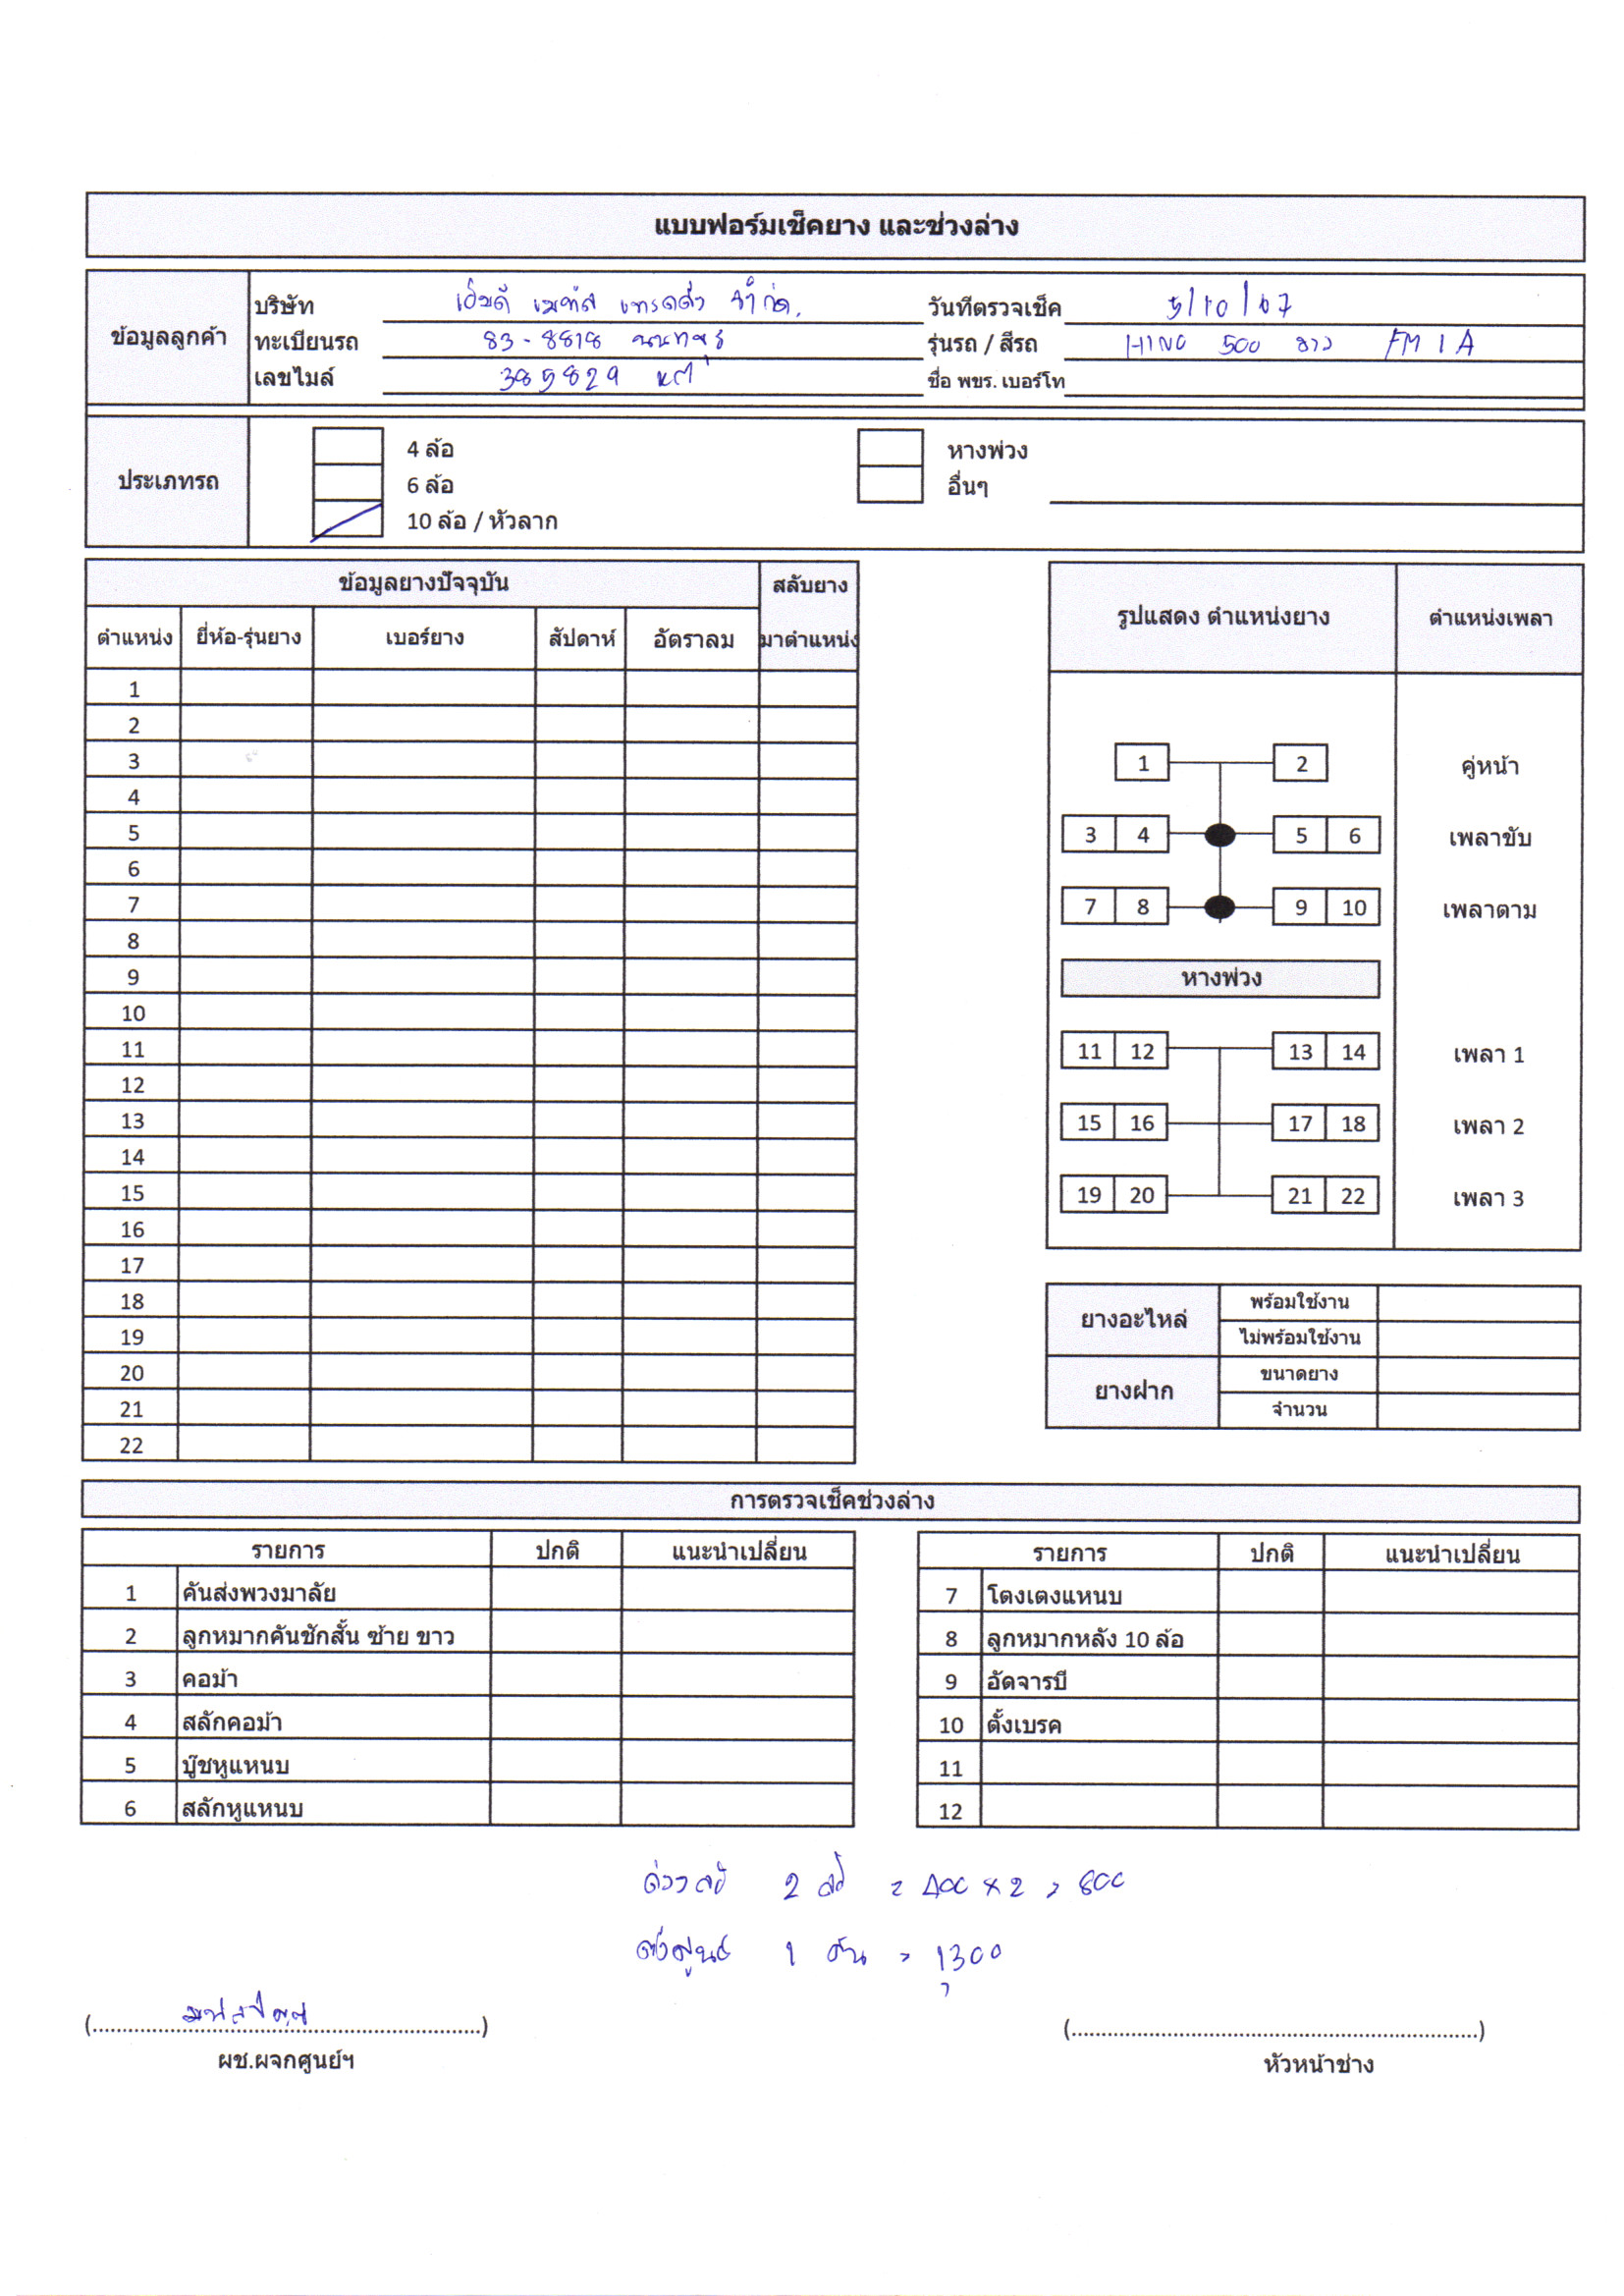 แบบฟอร์มเช็คยาง และช่วงล่าง
ข้อมูลลูกค้า
บริษัท เอ็มดี เมทัล เทรดดิ้ง จำกัด.
วันที่ตรวจเช็ค 5/10/67
ทะเบียนรถ 83-8818 นนทบุรี
รุ่นรถ / สีรถ HINO 500 ขาว FM 1 A
เลขไมล์ 385829
ชื่อ พขร. เบอร์โท
ประเภทรถ
4 ล้อ
หางพ่วง
6 ล้อ
อื่นๆ
10 ล้อ / หัวลาก
ข้อมูลยางปัจจุบัน สลับยาง
ตำแหน่ง ยี่ห้อ-รุ่นยาง เบอร์ยาง สัปดาห์ อัตราลม มาตำแหน่ง
1
2
3
4
5
6
7
8
9
10
11
12
13
14
15
16
17
18
19
20
21
22
รูปแสดง ตำแหน่งยาง ตำแหน่งเพลา
1 2 คู่หน้า
3 4 5 6 เพลาขับ
7 8 9 10 เพลาตาม
หางพ่วง
11 12 13 14 เพลา 1
15 16 17 18 เพลา 2
19 20 21 22 เพลา 3
ยางอะไหล่ พร้อมใช้งาน
ไม่พร้อมใช้งาน
ยางฝาก ขนาดยาง
จำนวน
การตรวจเช็คช่วงล่าง
รายการ ปกติ แนะนำเปลี่ยน
1 คันส่งพวงมาลัย
2 ลูกหมากคันชักสั้น ซ้าย ขาว
3 คอม้า
4 สลักคอม้า
5 บู๊ชหูแหนบ
6 สลักหูแหนบ
รายการ ปกติ แนะนำเปลี่ยน
7 โตงเตงแหนบ
8 ลูกหมากหลัง 10 ล้อ
9 อัดจารบี
10 ตั้งเบรค
11
12
ถ่วงล้อ 2 ล้อ = 400 x 2 = 800
ตั้งศูนย์ 1 คัน = 1,300
(..........)
ผช.ผจกศูนย์ฯ
(..........)
หัวหน้าช่าง